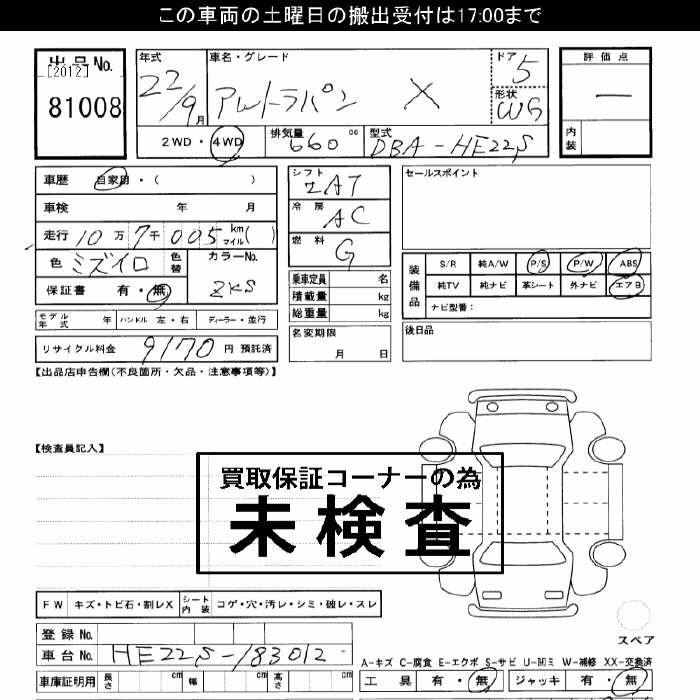 この車両の土曜日の搬出受付は17:00まで
出品No.
[2012]
81008
年式
22/9月
車名・グレード
アルトラパン X
ドア
5
形状
WG
2WD・4WD
排気量
660 cc
型式
DBA-HE22S
評価点
―
内装
車歴 自家用・( )
車検 年 月
走行 10万7千005 km マイル( )
色 ミズイロ 色替
カラーNo.
ZKS
保証書 有・無
モデル年式 年 ハンドル 左・右 ディーラー・並行
リサイクル料金 9170 円 預託済
シフト
2AT
冷房
AC
燃料
G
乗車定員 名
積載量 kg
総重量 kg
名変期限
月 日
セールスポイント
装備品
S/R 純A/W P/S P/W ABS
純TV 純ナビ 革シート 外ナビ エアB
ナビ型番:
後日品
【出品店申告欄(不良箇所・欠品・注意事項等)】
【検査員記入】
買取保証コーナーの為
未検査
FW キズ・トビ石・割レX シート内装 コゲ・穴・汚レ・シミ・破レ・スレ
登録No.
車台No. HE22S-183012
車庫証明用 長さ cm 幅 cm 高さ cm
スペア
A-キズ C-腐食 E-エクボ S-サビ U-凹ミ W-補修 XX-交換済
工具 有・無 ジャッキ 有・無